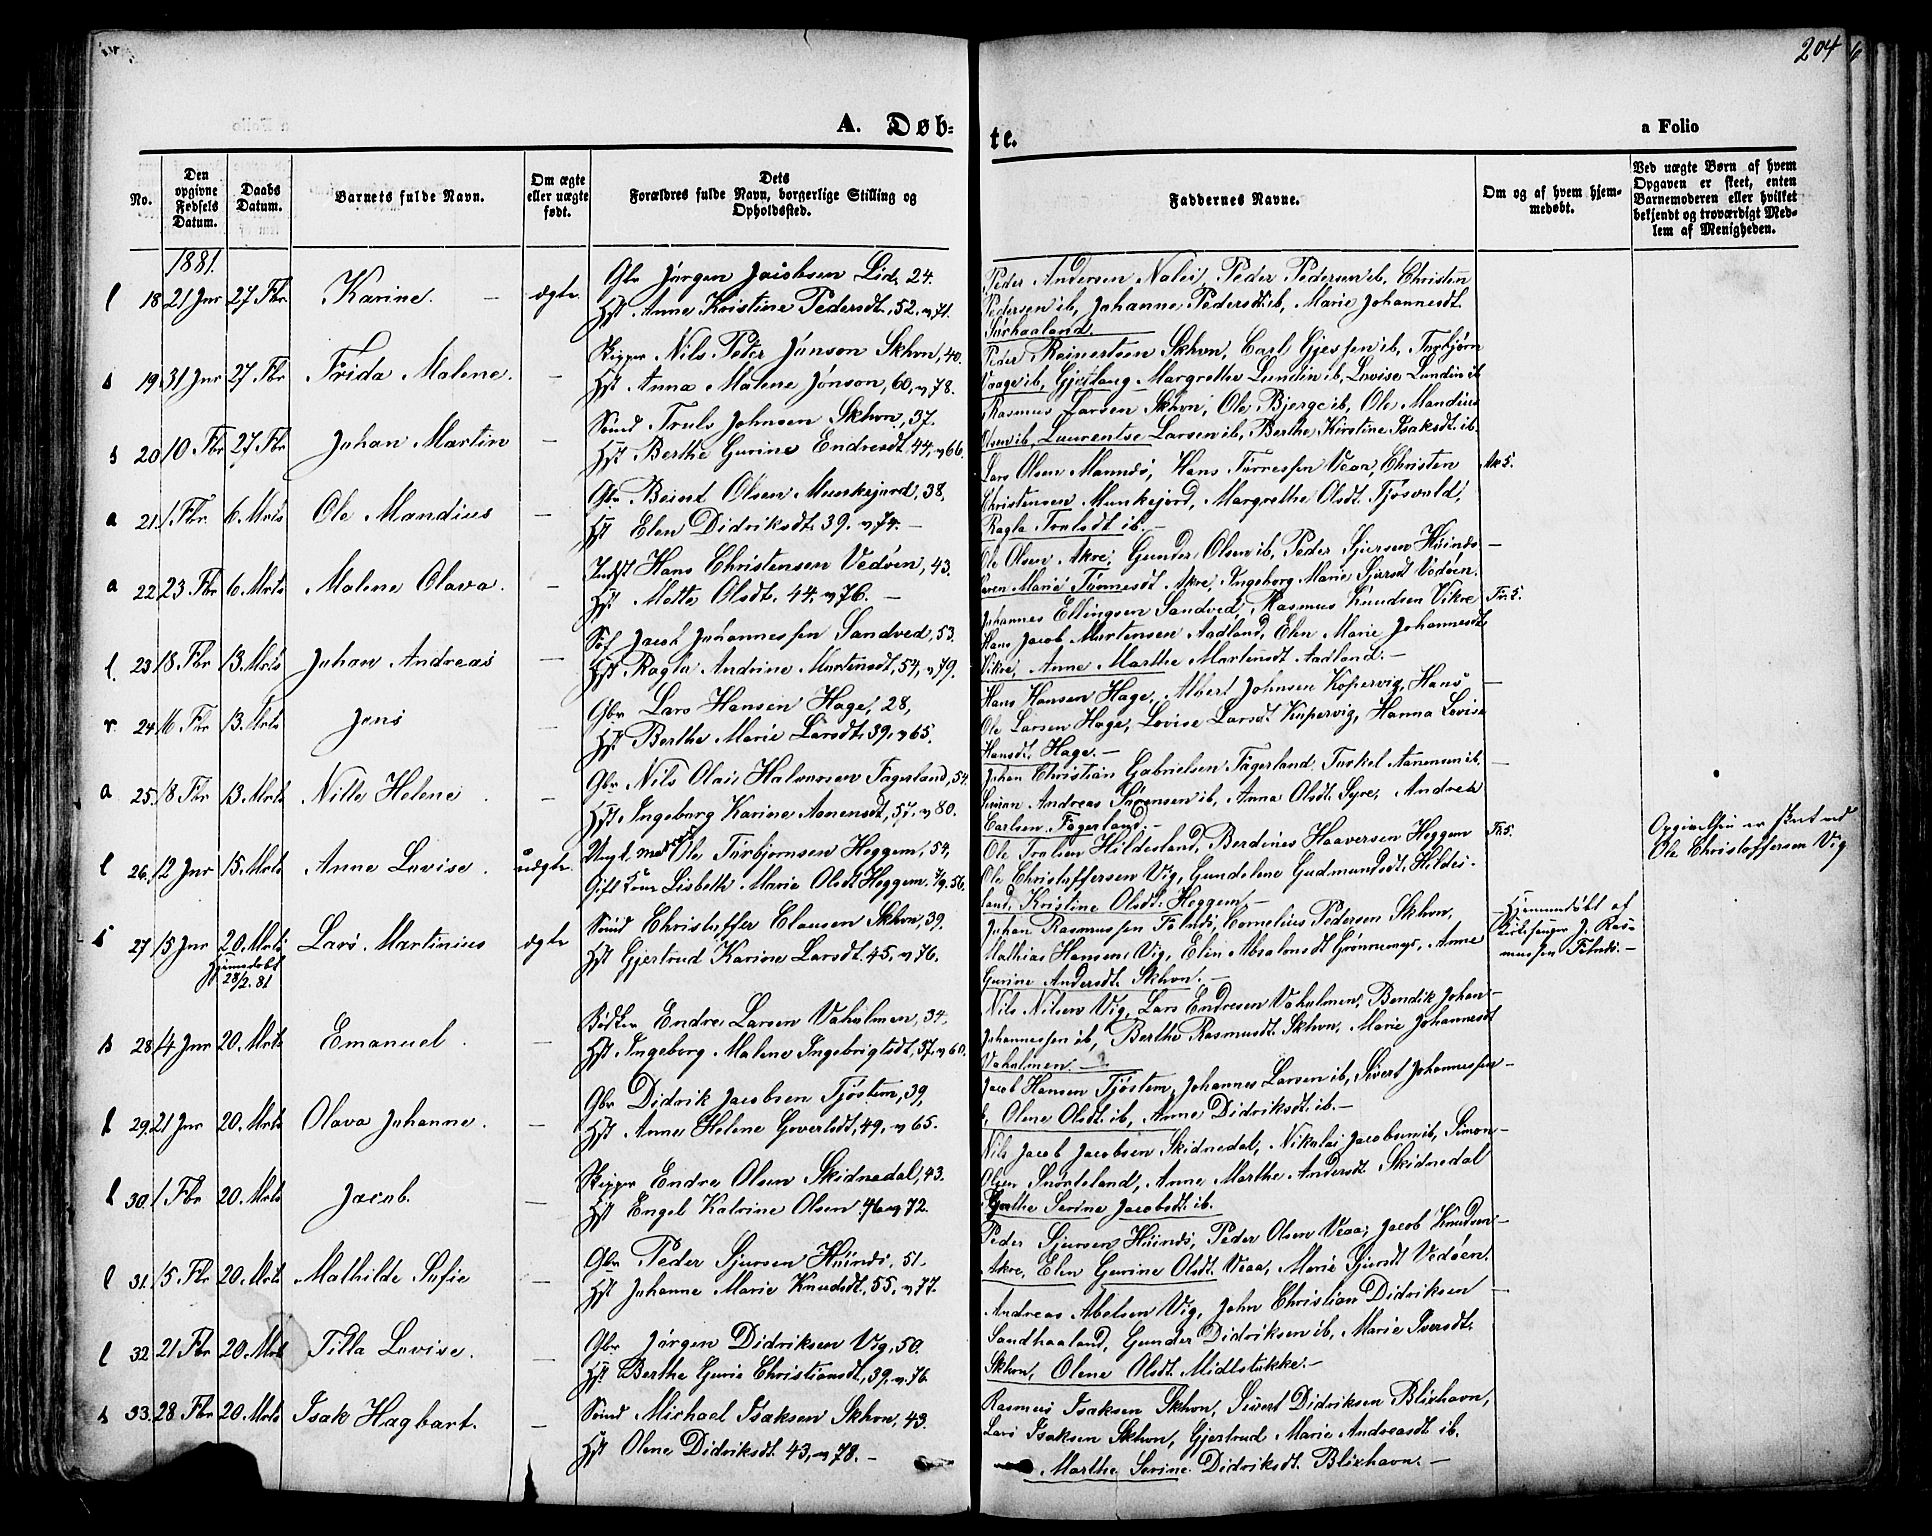 204
A. Døb-
te.
a Folio
No.
Den opgivne Fødsels Datum.
Daabs Datum.
Barnets fulde Navn.
Om ægte eller uægte født.
Dets Forældres fulde Navn, borgerlige Stilling og Opholdssted.
Faddernes Navne.
Om og af hvem hjem-
medøbt.
Ved uægte Børn af hvem
Opgaven er skeet, enten
Barnemoderen eller hvilket
bekjendt og troværdigt Med-
lem af Menigheden.
1881.
18 21 Jnr 27 Fbr Karine. ægte
Gbr Jørgen Jacobsen Lid, 24.
Hst Anne Kristine Pedersdt., 52, 71.
Peder Andersen Nalei, Peder Pedersen ib, Christen
Pedersen ib, Johanne Pedersdt. ib, Marie Johannesdt.
Sørhaaland.
19. 31 Jnr 27 Fbr Frida Malene.
Skipper Nils Peter Jönson Skhvn, 40.
Hst Anna Malene Jönson, 60, 78.
Peder Reinertsen Skhvn, Carl Gjessen ib, Torbjørn
Vaage ib, Margrethe Lundin ib, Lovise Lundin ib
20 10 Fbr 27 Fbr Johan Martin
Smed Truls Johnsen Skhvn, 37.
Hst Berthe Gurine Endresdt. 44, 66.
Rasmus Larsen Skhvn, Ole Bjerge ib, Ole Mandius
Olsen ib, Laurentse Larsen ib, Berthe Kirstine Isaksdt. ib.
21. 1 Fbr. 6. Mrts Ole Mandius
Gbr Beint Olsen Munkejord, 38,
Hst Elen Didriksdt. 39. 74.
Lars Olsen Mannes, Hans Tørressen Veaa, Christen
Christensen Munkejord, Margrethe Olsdt. Tjosvold,
Ragla Trulsdt ib.
Ak 5.
22. 23 Fbr 6. Mrts Malene Olava.
Indst Hans Christensen Vedøen, 43.
Hst Mette Olsdt. 44. 76.
Ole Olsen Akre, Gunder Olsen ib, Peder Sjursen Hiinds
Marie Tønnesdt. Akre, Ingeborg Marie Sjursdt Vedøen.
23. 18 Fbr. 13. Mrts Johan Andreas
Jacob Johannessen Sandved, 53.
Hst Ragla Andrine Martensdt, 54, 79.
Johannes Ellingsen Sandved, Rasmus Knudsen Vikre
Hans Jacob Martensen Aadland, Elen Marie Johannesdt.
Vikre, Anne Marthe Martensdt Aadland.
Fr. 5.
24. 16 Fbr 13. Mrts Jens
Gbr Lars Hansen Hage, 28,
Hst Berthe Marie Larsdt. 39, 65.
Hans Hansen Hage, Albert Johnsen Kopervig, Hans
Ole Larsen Hage, Lovise Larsdt. Kopervig, Hanna Lovise
Hansdt. Hage.
25. 18 Fbr 13. Mrts Nille Helene
Gbr Nils Olai Halvorsen Fagerland, 54
Hst Ingeborg Karine Aanensdt, 57, 80.
Johan Christian Gabrielsen Fagerland, Torkel Aanensen ib,
Simon Andreas Sørensen ib, Anna Olsdt. Syre, Andrea
Carlsen Fagerland.
26. 12 Jnr 15. Mrts Anne Lovise. uægte
Ungk. Ole Torbjørnsen Heggem, 54,
Gift Kone Lisbeth Marie Olsdt Heggem, 56.
Ole Trulsen Hildesland, Berdines Haaversen Heggem
Ole Christoffersen Vig, Gundelene Gudmundsdt. Hildes-
land, Kristine Olsdt. Heggem.
Fr 5.
Opgivelsen er skeet ved
Ole Christoffersen Vig
27. 15 Jnr 20. Mrts Lars Martinius ægte
Hjemmedøbt
28/2. 81
Smed Christoffer Clausen Skhvn, 39.
Hst Gjertrud Karine Larsdt. 45, 76.
Johan Rasmussen Falnæs, Cornelius Pedersen Skhvn,
Mathias Hansen Vig, Elen Absalonsdt Grønnemyr, Anne
Gurine Andersdt. Skhvn.
Hjemmedøbt af
Kirkesanger J. Ras-
mussen Falnæs.
28. 14 Jnr 20. Mrts Emanuel.
Bødker Endre Larsen Vaholmen, 34.
Hst Ingeborg Malene Ingebrigtsdt., 37, 60.
Nils Nilsen Vig, Lars Endresen Vaholmen, Bendik Johan
Johannessen ib, Berthe Rasmusdt. Skhvn, Marie Johannesdt
Vaholmen.
29. 21 Jnr 20. Mrts Olava Johanne.
Gbr Didrik Jacobsen Tjøstem, 39,
Hst Anne Helene Govertsdt., 49, 65.
Jacob Hansen Tjøstem, Johannes Larsen ib, Sivert Johannessen
ib, Olene Olsdt. ib, Anne Didriksdt. ib.
30. 1 Fbr 20. Mrts Jacob.
Skipper Endre Olsen Skidnedal, 43.
Hst Engel Katrine Olsen 46, 72.
Nils Jacob Jacobsen Skidnedal, Nikolai Jacobsen ib, Simon
Olsen Snørteland, Anne Marthe Andersdt. Skidnedal
Serine Jacobsdt. ib.
31. 15 Fbr 20. Mrts Mathilde Sofie
Gbr Peder Sjursen Hiinds, 51.
Hst Johanne Marie Knudsdt. 55, 77.
Peder Sjursen Hiinds, Peder Olsen Veaa, Jacob Knudsen
Akre, Elen Gurine Olsdt. Veaa, Marie Sjursdt Vedøen.
32. 21 Fbr 20. Mrts Tilla Lovise.
Gbr Jørgen Didriksen Vig, 50.
Hst Berthe Gurie Christiansdt, 39, 76.
Andreas Abelsen Vig, John Christian Didriksen
Sandhaaland, Gunder Didriksen ib, Marie Iversdt.
Skhvn, Olene Olsdt. Midtstokke.
33. 28 Fbr 20. Mrts Isak Hagbart.
Smed Michael Isaksen Skhvn, 43.
Hst Olene Didriksdt. 43, 78.
Rasmus Isaksen Skhvn, Sivert Didriksen Blixhavn,
Lars Isaksen Skhvn, Gjertrud Marie Andreasdt ib.
Marthe Serine Didriksdt. Blixhavn.